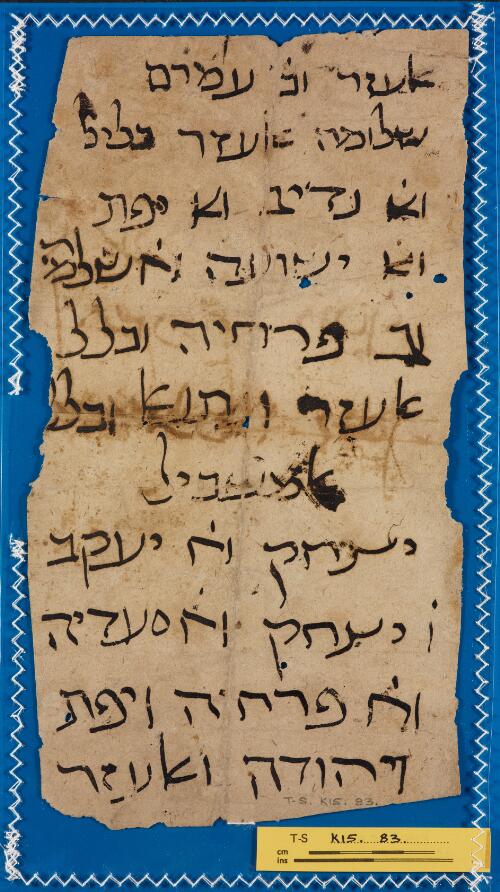 אעזר וב עמרם
שלומה אעזר בליל
וא נדיב וא יפת
וא ישועה וא שלמה
וב פרחיה וכלל
אעזר ו תנא וכלל
יצחק וא יעקב
ו יצחק וא סעדיה
וא פרחיה ויפת
ויהודה ואעזר
T-S. K15. 83.
T-S K15. 83.
cm
ins